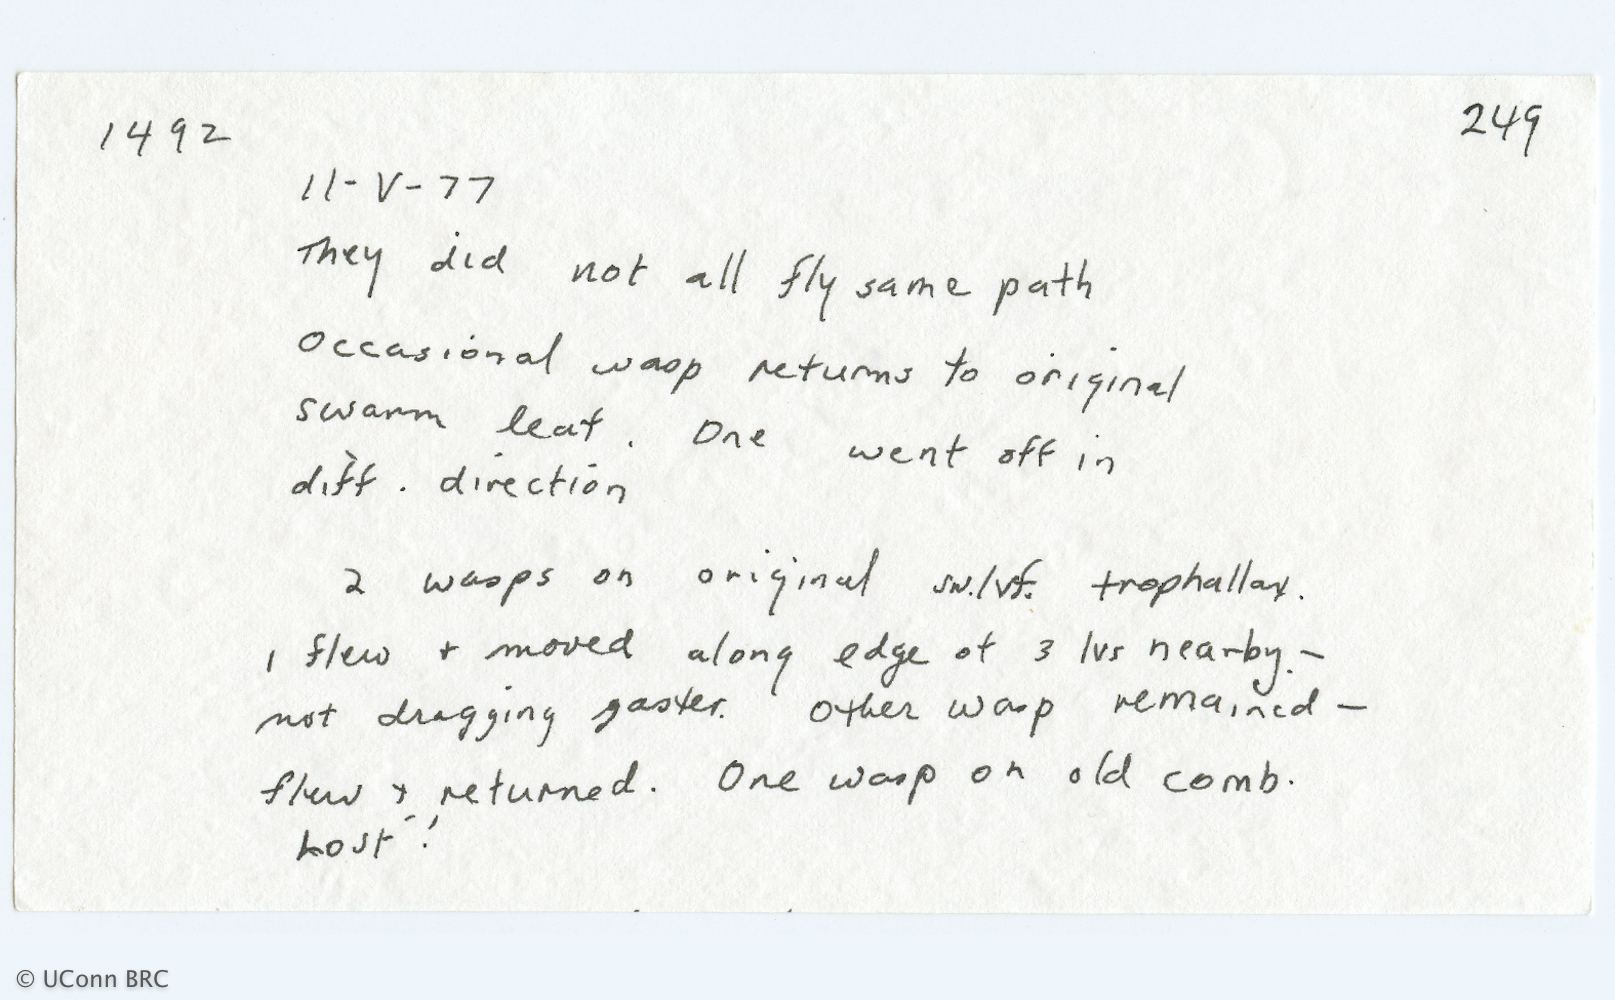 1492
249
11-V-77
They did not all fly same path
Occasional wasp returns to original
swarm leaf. One went off in
diff. direction
2 wasps on original sw. lvf. trophallax.
1 flew + moved along edge of 3 lvs nearby. —
not dragging gaster. Other wasp remained —
flew + returned. One wasp on old comb.
Lost!
© UConn BRC